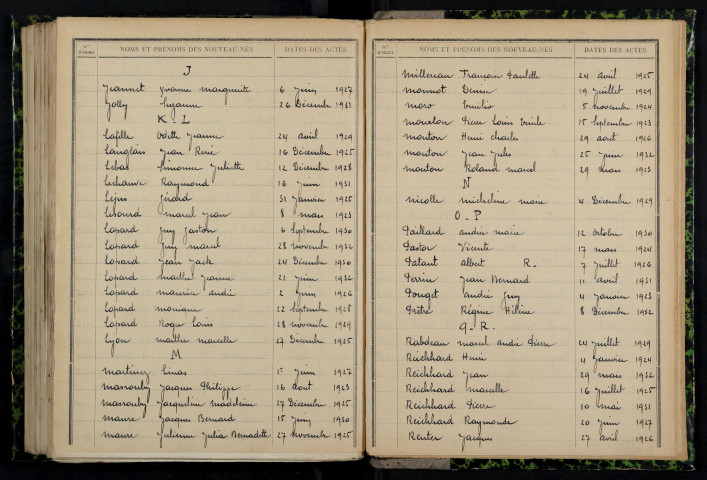 Nos D'ORDRE NOMS ET PRÉNOMS DES NOUVEAU-NÉS DATES DES ACTES
J
Jeannet Yvonne Marguerite 6 Juin 1927
Jolly Suzanne 26 Décembre 1931
K-L
Lafille Odette Jeanne 24 avril 1929
Langlais Jean René 16 Décembre 1925
Lebas Simonne Juliette 12 Décembre 1928
Lechauve Raymond 16 Juin 1931
Lejus Gérard 31 Janvier 1925
Lesourd Marcel Jean 8 mars 1923
Lopard Guy Gaston 6 Septembre 1930
Lopard Guy Marcel 28 novembre 1932
Lopard Jean Jack 24 Décembre 1930
Lopard Marthe Jeanne 21 Juin 1932
Lopard Maurice André 2 Juin 1926
Lopard Monique 22 Septembre 1928
Lopard Roger Louis 28 novembre 1929
Lyon Marthe Marcelle 27 Décembre 1925
M
Martinez 1er Juin 1927
Massouby Jacques Philippe 16 août 1923
Massouby Jacqueline Madeleine 27 Décembre 1925
Maure Jacques Bernard 15 Juin 1930
Maure Julienne Julia Bernadette 27 novembre 1925
Nos D'ORDRE NOMS ET PRÉNOMS DES NOUVEAU-NÉS DATES DES ACTES
Millereau François 24 avril 1925
Monnot Denise 19 Juillet 1929
Moro Emilio 5 novembre 1924
Mourlon Pierre Louis Emile 15 Septembre 1923
Mouton Henri Charles 29 août 1926
Mouton Jean Jules 25 Juin 1932
Mouton Roland Marcel 29 mars 1923
N
Nicolle Micheline Marie 4 Décembre 1929
O-P
Paillard André Marie 12 octobre 1930
Pastor Vicente 17 mars 1924
Patant Albert R. 7 Juillet 1926
Perrin Jean Bernard 11 avril 1931
Pouget André Guy 4 Janvier 1923
Prêtre Régine Hélène 8 Décembre 1932
Q-R
Rabdeau Marcel André Pierre 24 Juillet 1929
Reichhard Henri 4 Janvier 1924
Reichhard Jean 29 mars 1932
Reichhard Marcelle 16 Juillet 1925
Reichhard Pierre 10 mai 1931
Reichhard Raymonde 20 Juin 1927
Reuter Jacques 27 avril 1926